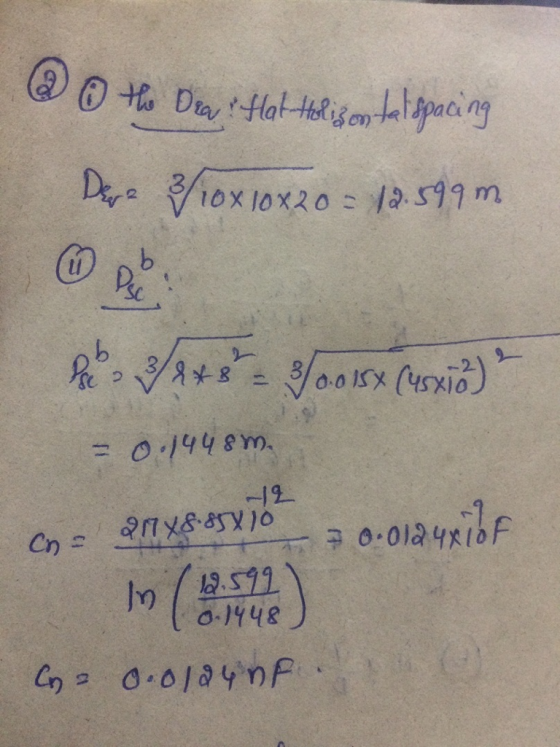 ② ⓘ the Deq : flat Horizontal spacing
Deq = ∛10×10×20 = 12.599 m
ⓘⓘ Dsc^b :
Dsc^b = ∛r*s^2 = ∛0.015×(45×10^-2)^2
= 0.1448 m.
Cn = 2π×8.85×10^-12 / ln(12.599/0.1448) = 0.0124×10^-9 F
Cn = 0.0124 nF .